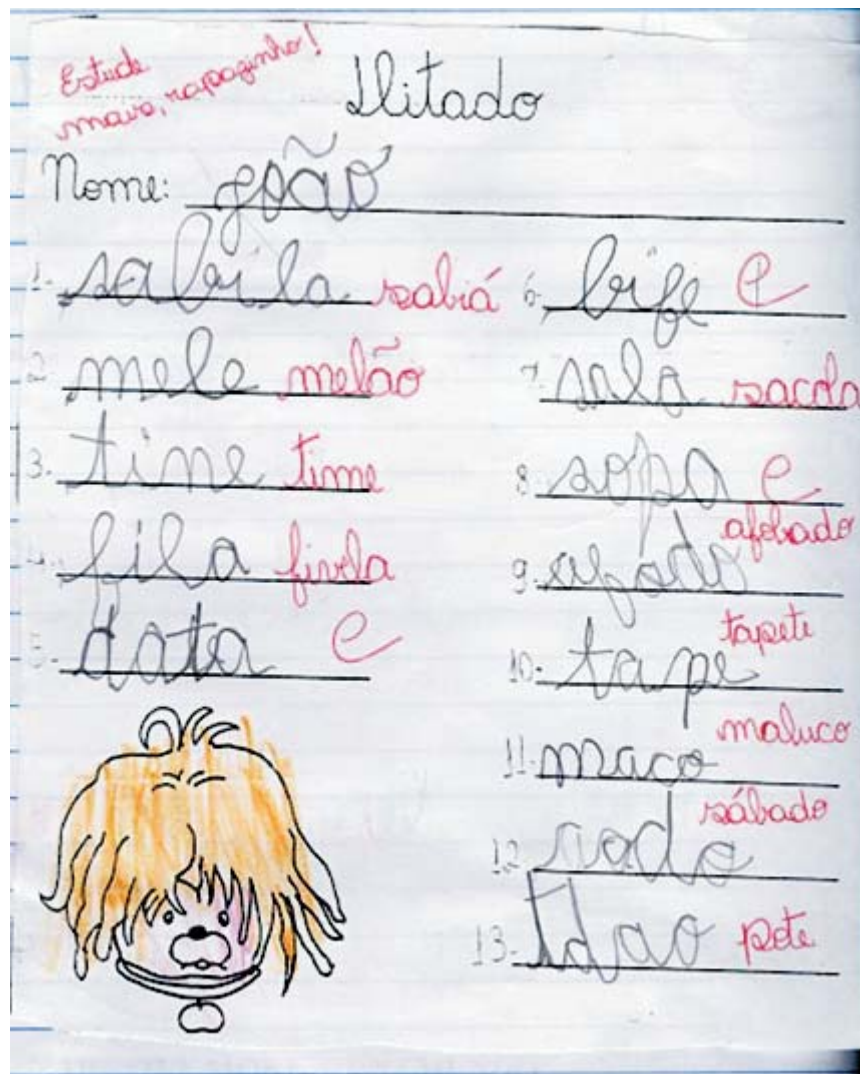 Estude
mais, rapazinho!
Ditado
Nome: João
1- sabila sabiá
2- mele melão
3- tine time
4- fila fivela
5- data C
6- bife C
7- sala sacola
8- sopa C
9- afodo afobado
10- tape tapete
11- maco maluco
12- sado sábado
13- pete